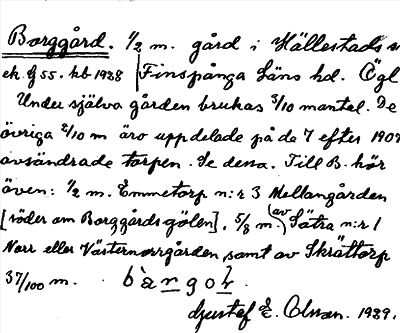 Borggård. 1/2 m. gård i Hällestads s
ek. bl 55. kb 1938 Finspånga Läns hd. Ögl
Under själva gården brukas 3/10 mantel. De
övriga 2/10 m äro uppdelade på de 7 efter 1907
avsöndrade torpen. Se dessa. Till B. hör
även: 1/2 m. Emmetorp n:r 3 Mellangården
[söder om Borggårdsgölen], 5/8 m. (av Sätra n:r 1
Norr eller Västernorrgården, samt av Skrättorp
37/100 m. bargol
Gustaf E. Olsson. 1939.